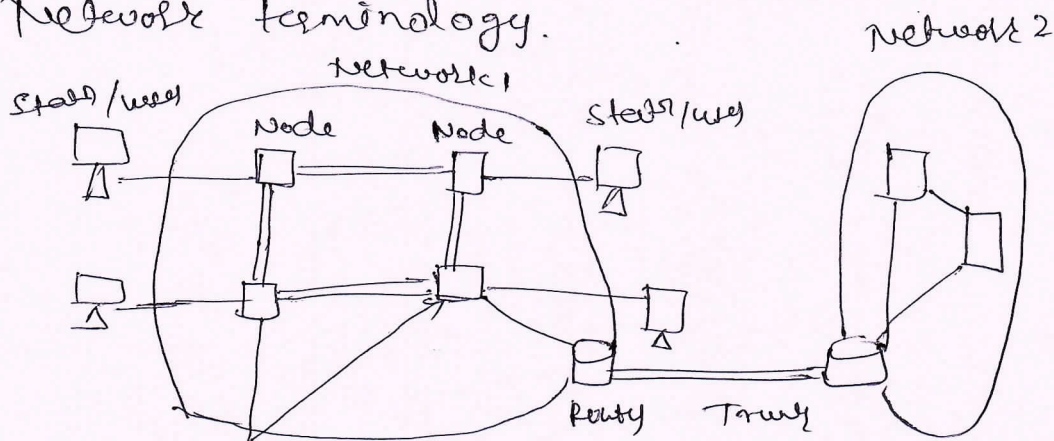 Network terminology.
Network 2
Network 1
Staff/user
Node
Node
Staff/user
Router
Trunk